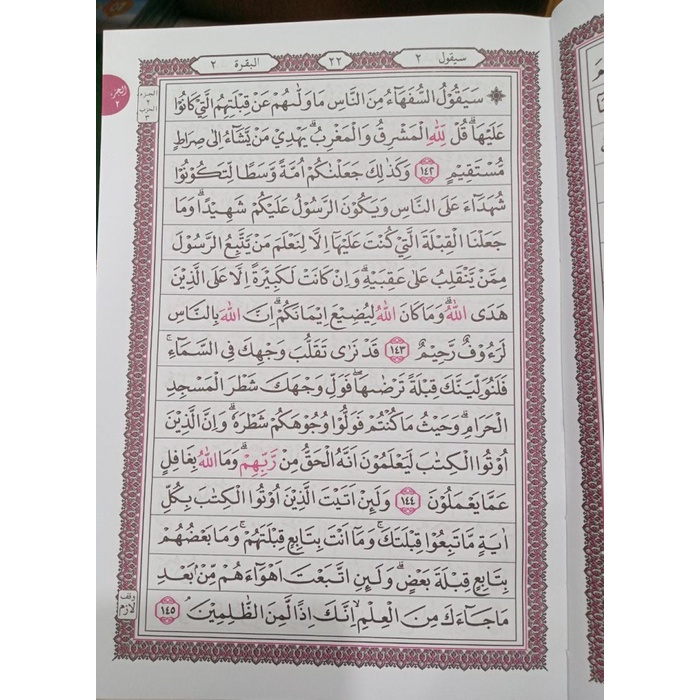 سيقول ٢
٢٢
البقرة ٢
الجزء
٢
الجزء
٢
الحزب
٣
سَيَقُوْلُ السُّفَهَاۤءُ مِنَ النَّاسِ مَا وَلّٰىهُمْ عَنْ قِبْلَتِهِمُ الَّتِيْ كَانُوْا
عَلَيْهَاۗ قُلْ لِّلّٰهِ الْمَشْرِقُ وَالْمَغْرِبُۗ يَهْدِيْ مَنْ يَّشَاۤءُ اِلٰى صِرَاطٍ
مُّسْتَقِيْمٍ ١٤٢ وَكَذٰلِكَ جَعَلْنٰكُمْ اُمَّةً وَّسَطًا لِّتَكُوْنُوْا
شُهَدَاۤءَ عَلَى النَّاسِ وَيَكُوْنَ الرَّسُوْلُ عَلَيْكُمْ شَهِيْدًاۗ وَمَا
جَعَلْنَا الْقِبْلَةَ الَّتِيْ كُنْتَ عَلَيْهَآ اِلَّا لِنَعْلَمَ مَنْ يَّتَّبِعُ الرَّسُوْلَ
مِمَّنْ يَّنْقَلِبُ عَلٰى عَقِبَيْهِۗ وَاِنْ كَانَتْ لَكَبِيْرَةً اِلَّا عَلَى الَّذِيْنَ
هَدَى اللّٰهُۗ وَمَا كَانَ اللّٰهُ لِيُضِيْعَ اِيْمَانَكُمْۗ اِنَّ اللّٰهَ بِالنَّاسِ
لَرَءُوْفٌ رَّحِيْمٌ ١٤٣ قَدْ نَرٰى تَقَلُّبَ وَجْهِكَ فِى السَّمَاۤءِۚ
فَلَنُوَلِّيَنَّكَ قِبْلَةً تَرْضٰىهَاۖ فَوَلِّ وَجْهَكَ شَطْرَ الْمَسْجِدِ
الْحَرَامِۗ وَحَيْثُ مَا كُنْتُمْ فَوَلُّوْا وُجُوْهَكُمْ شَطْرَهٗۗ وَاِنَّ الَّذِيْنَ
اُوْتُوا الْكِتٰبَ لَيَعْلَمُوْنَ اَنَّهُ الْحَقُّ مِنْ رَّبِّهِمْۗ وَمَا اللّٰهُ بِغَافِلٍ
عَمَّا يَعْمَلُوْنَ ١٤٤ وَلَىِٕنْ اَتَيْتَ الَّذِيْنَ اُوْتُوا الْكِتٰبَ بِكُلِّ
اٰيَةٍ مَّا تَبِعُوْا قِبْلَتَكَۚ وَمَآ اَنْتَ بِتَابِعٍ قِبْلَتَهُمْۚ وَمَا بَعْضُهُمْ
بِتَابِعٍ قِبْلَةَ بَعْضٍۗ وَلَىِٕنِ اتَّبَعْتَ اَهْوَاۤءَهُمْ مِّنْۢ بَعْدِ
مَا جَاۤءَكَ مِنَ الْعِلْمِۙ اِنَّكَ اِذًا لَّمِنَ الظّٰلِمِيْنَۘ ١٤٥
وقف
لازم